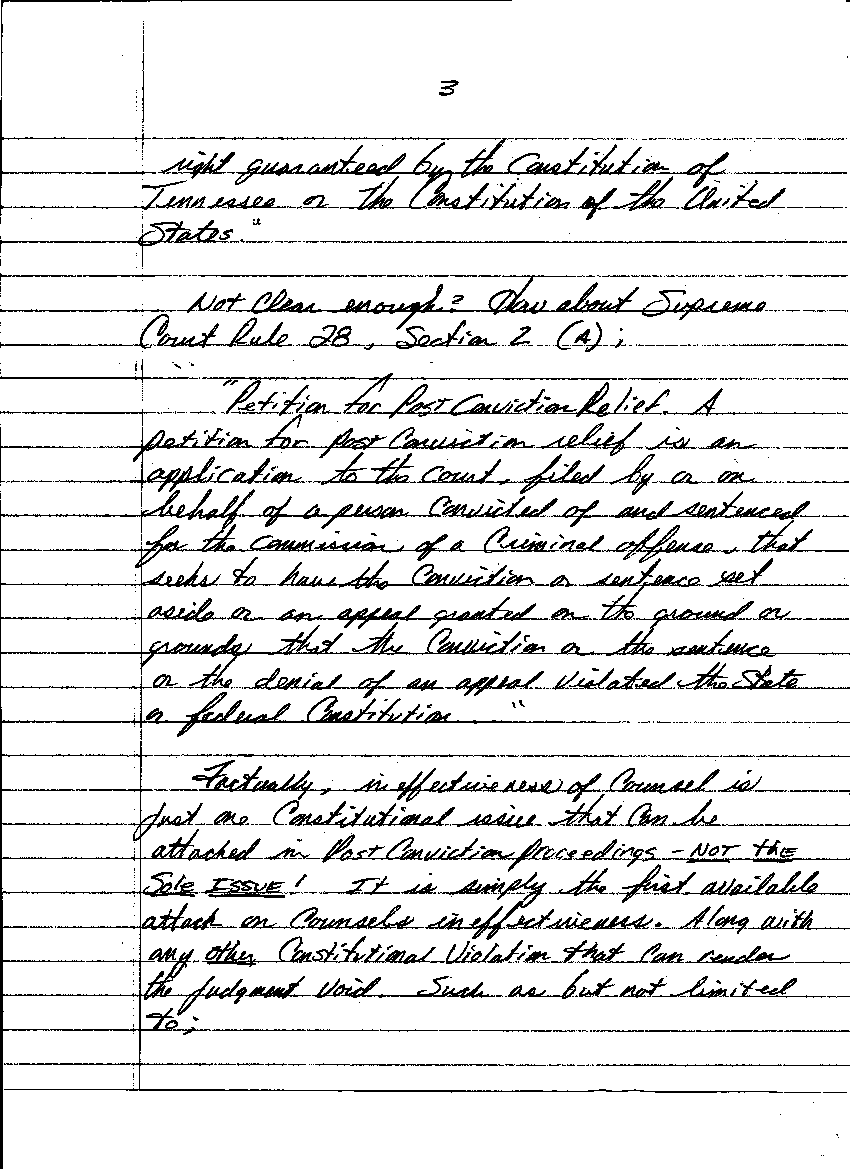 3
right guaranteed by the Constitution of
Tennessee or the Constitution of the United
States."
Not Clear enough? How about Supreme
Court Rule 28, Section 2 (A);
"Petition for Post Conviction Relief. A
petition for post Conviction relief is an
application to the Court, filed by or on
behalf of a person Convicted of and sentenced
for the commission, of a Criminal offense, that
seeks to have the Conviction or sentence set
aside or an appeal granted on the ground or
grounds that the Conviction or the sentence
or the denial of an appeal violated the State
or federal Constitution. . ."
Factually, ineffectiveness of Counsel is
just one Constitutional issue that Can be
attached in Post Conviction proceedings - NOT the
Sole ISSUE! It is simply the first available
attack on Counsels ineffectiveness. Along with
any other Constitutional Violation that Can render
the judgment void. Such as but not limited
to;